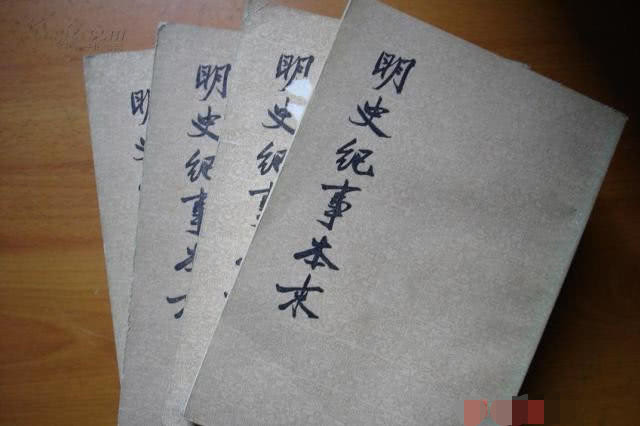 明史纪事本末
明史纪事本
明史纪事
明史